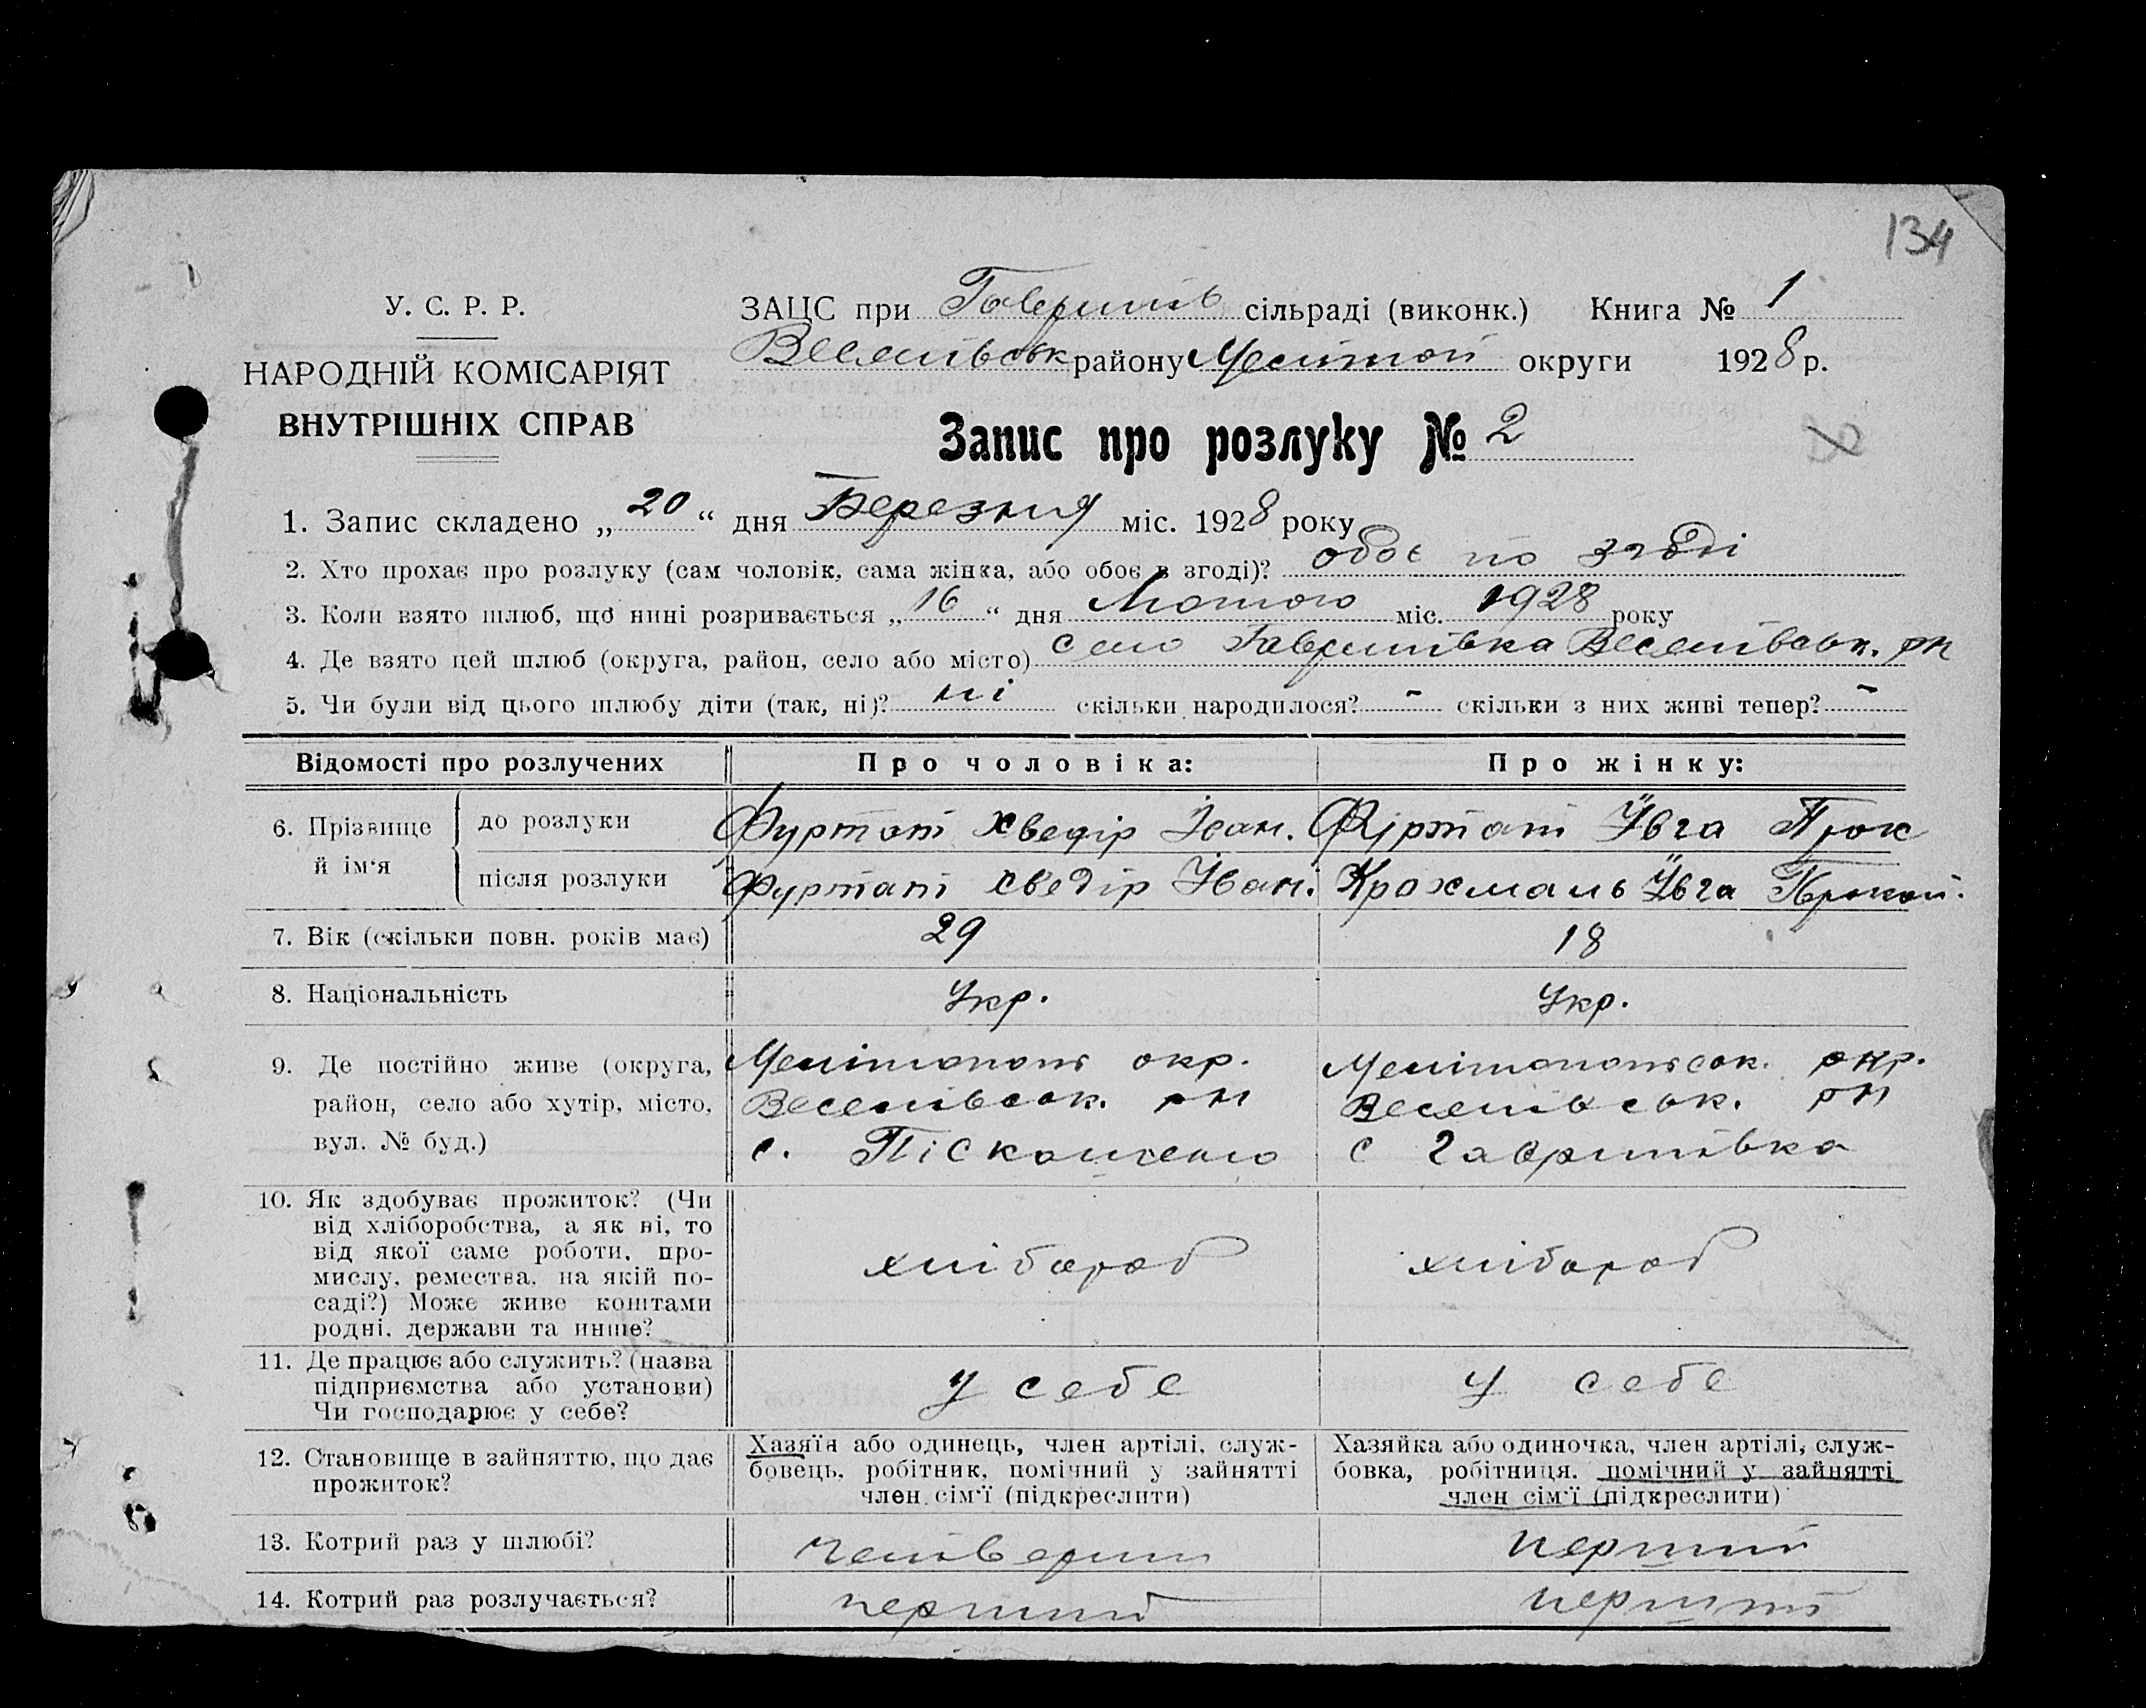 134
У. С. Р. Р.
НАРОДНІЙ КОМІСАРІЯТ
ВНУТРІШНІХ СПРАВ
ЗАЦС при Гаврилів сільраді (виконк.) Книга № 1
Веселівськ району Меліт округи 1928 р.
Запис про розлуку № 2
1. Запис складено „ 20 “ дня Березня міс. 1928 року
2. Хто прохає про розлуку (сам чоловік, сама жінка, або обоє в згоді)? обоє по згоді
3. Коли взято шлюб, що нині розривається „ 16 “ дня Лютого міс. 1928 року
4. Де взято цей шлюб (округа, район, село або місто) село Гаврилівка Веселівськ. рн
5. Чи були від цього шлюбу діти (так, ні)? ні скільки народилося? - скільки з них живі тепер? -
Відомості про розлучених Про чоловіка: Про жінку:
6. Прізвище й ім‘я
до розлуки Фуртат Хведір Іван. Фуртат Ївга Прок
після розлуки Фуртат Хведір Іван. Крохмаль Ївга Прокоп.
7. Вік (скільки повн. років має) 29 18
8. Національність Укр. Укр.
9. Де постійно живе (округа, Мелітополь окр. Мелітопольсок. окр.
район, село або хутір, місто, Веселівсок. рн Веселівсок. рн
вул. № буд.) с. с Гаврилівка
10. Як здобуває прожиток? (Чи
від хліборобства, а як ні, то
від якої саме роботи, про-
мислу, ремества, на якій по-
саді?) Може живе коштами
родні, держави та инше?
хлібороб хлібороб
11. Де працює або служить? (назва
підприємства або установи)
Чи господарює у себе?
у себе у себе
12. Становище в зайняттю, що дає
прожиток?
Хазяїн або одинець, член артілі, служ-
бовець, робітник, помічний у зайнятті
член сім‘ї (підкреслити)
Хазяйка або одиночка, член артілі, служ-
бовка, робітниця, помічний у зайнятті
член сім‘ї (підкреслити)
13. Котрий раз у шлюбі? перший
14. Котрий раз розлучається? перший перший